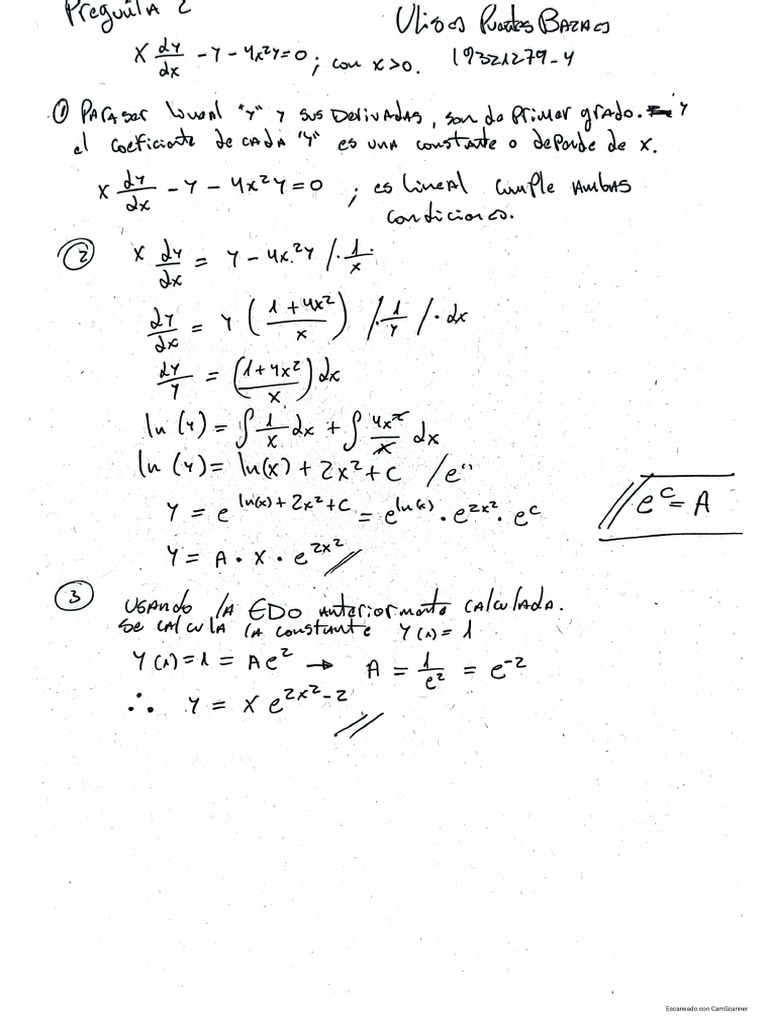 Pregunta 2
Ulises Puentes Bazaes
x dy/dx - y - 4x²y = 0 ; con x > 0.
19321279-4
① Para ser lineal "y" y sus derivadas, son de primer grado. y
el coeficiente de cada "y" es una constante o depende de x.
x dy/dx - y - 4x²y = 0 ; es lineal cumple ambas
condiciones.
② x dy/dx = y - 4x²y /· 1/x
dy/dx = y ( (1+4x²)/x ) /· 1/y /· dx
dy/y = ( (1+4x²)/x ) dx
ln(y) = ∫ 1/x dx + ∫ 4x²/x dx
ln(y) = ln(x) + 2x² + C / e^()
y = e^(ln(x) + 2x² + C) = e^(ln(x)) · e^(2x²) · e^C
// e^C = A
y = A · x · e^(2x²) //
③ Usando la EDO anteriormente calculada.
se calcula la constante y(1) = 1
y(1) = 1 = Ae² → A = 1/e² = e^(-2)
∴ y = x e^(2x²-2) //
Escaneado con CamScanner